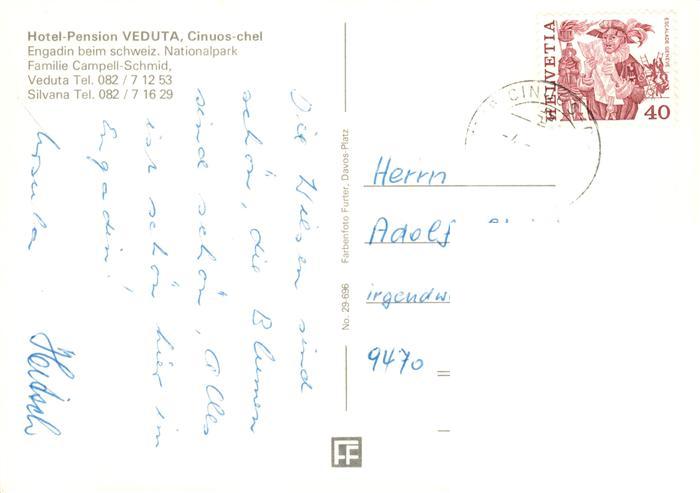 Hotel-Pension VEDUTA, Cinuos-chel
Engadin beim schweiz. Nationalpark
Familie Campell-Schmid,
Veduta Tel. 082 / 7 12 53
Silvana Tel. 082 / 7 16 29
Die Wiesen sind
schön, die Blumen
sind schön, alles
ist schön hier im
Engadin!
Ursula
No. 29-696 Farbenfoto Furter, Davos-Platz
HELVETIA
ESCALADE GENÈVE
40
CIN
Herrn
Adolf
irgendw
9470